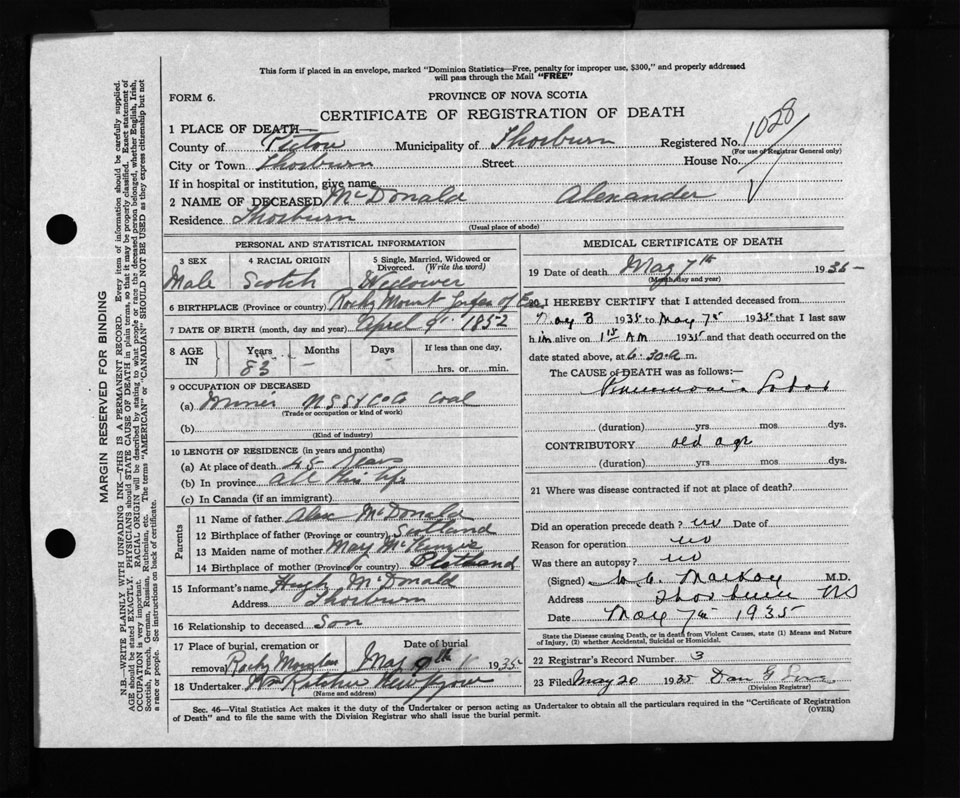 This form if placed in an envelope, marked "Dominion Statistics—Free, penalty for improper use, $300," and properly addressed
will pass through the Mail "FREE"
FORM 6.
PROVINCE OF NOVA SCOTIA
CERTIFICATE OF REGISTRATION OF DEATH
1028
1 PLACE OF DEATH—
County of Pictou Municipality of Thorburn Registered No.
(For use of Registrar General only)
City or Town Thorburn Street House No.
If in hospital or institution, give name
2 NAME OF DECEASED McDonald Alexander
Residence Thorburn
(Usual place of abode)
PERSONAL AND STATISTICAL INFORMATION
3 SEX 4 RACIAL ORIGIN 5 Single, Married, Widowed or
Divorced. (Write the word)
Male Scotch Widower
6 BIRTHPLACE (Province or country) Rocky Mount
7 DATE OF BIRTH (month, day and year) April 9 1852
8 AGE IN Years Months Days If less than one day,
83 — hrs. or min.
9 OCCUPATION OF DECEASED
(a) Coal
(Trade or occupation or kind of work)
(b)
(Kind of industry)
10 LENGTH OF RESIDENCE (in years and months)
(a) At place of death 45 years
(b) In province all his life
(c) In Canada (if an immigrant)
Parents
11 Name of father Alex McDonald
12 Birthplace of father (Province or country) Scotland
13 Maiden name of mother Mary McKenzie
14 Birthplace of mother (Province or country)
15 Informant's name Hugh McDonald
Address Thorburn
16 Relationship to deceased Son
17 Place of burial, cremation or Date of burial
removal Rocky Mountain May 9th 1935
18 Undertaker
(Name and address)
MEDICAL CERTIFICATE OF DEATH
19 Date of death May 7th 1935
(Month, day and year)
20 I HEREBY CERTIFY that I attended deceased from
May 3 1935 to May 7th 1935 that I last saw
him alive on 1st AM 1935 and that death occurred on the
date stated above, at 6.30 a. m.
The CAUSE of DEATH was as follows:—
Pneumonia Lobar
(duration) yrs mos dys.
CONTRIBUTORY old age
(duration) yrs mos dys.
21 Where was disease contracted if not at place of death?
Did an operation precede death? no Date of
Reason for operation no
Was there an autopsy? no
(Signed) MacKay M.D.
Address Thorburn NS
Date May 7th 1935
State the Disease causing Death, or in death from Violent Causes, state (1) Means and Nature
of Injury, (2) whether Accidental, Suicidal or Homicidal.
22 Registrar's Record Number 3
23 Filed May 20 1935 Dan G
(Division Registrar)
Sec. 46—Vital Statistics Act makes it the duty of the Undertaker or person acting as Undertaker to obtain all the particulars required in the "Certificate of Registration
of Death" and to file the same with the Division Registrar who shall issue the burial permit.
(OVER)
MARGIN RESERVED FOR BINDING
N.B.—WRITE PLAINLY WITH UNFADING INK—THIS IS A PERMANENT RECORD. Every item of information should be carefully supplied.
AGE should be stated EXACTLY. PHYSICIANS should STATE CAUSE OF DEATH in plain terms, so that it may be properly classified. Exact statement of
OCCUPATION is very important. RACIAL ORIGIN will be described by stating to what people or race the deceased person belonged, whether English, Irish,
Scottish, French, German, Russian, Ruthenian, etc. The terms "AMERICAN" or "CANADIAN" SHOULD NOT BE USED as they express citizenship but not
a race or people. See instructions on back of certificate.